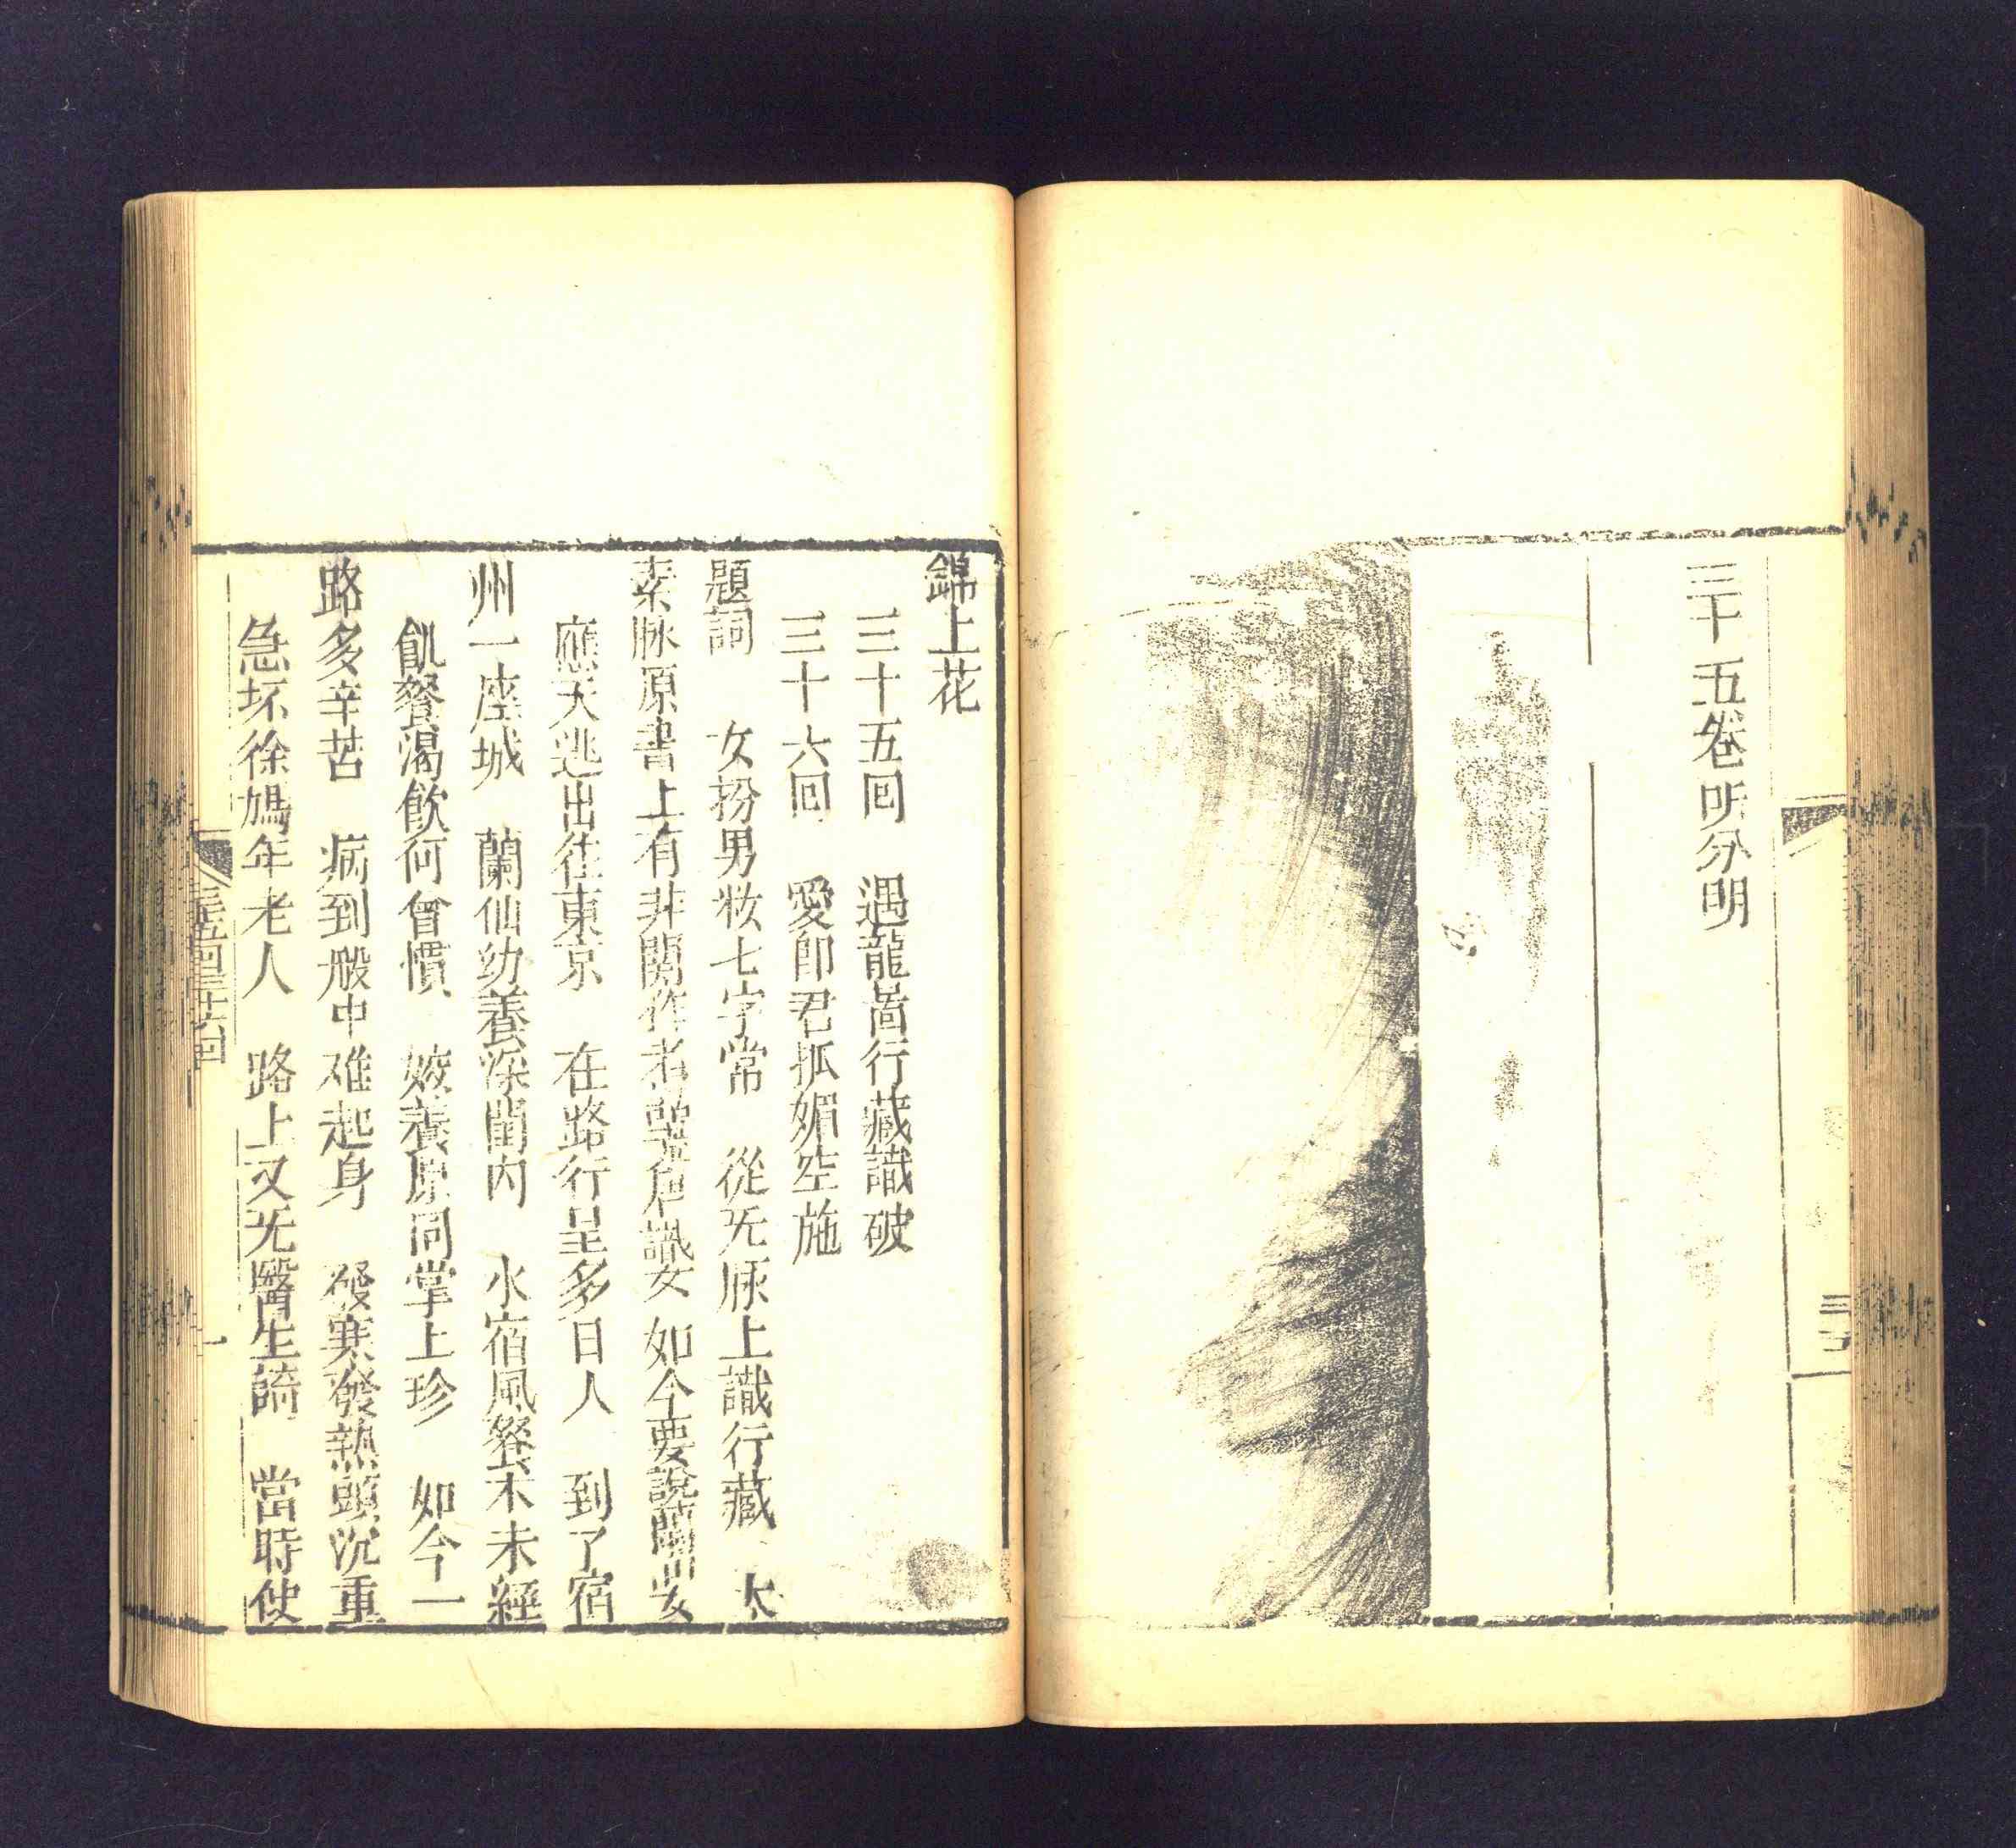 三十五卷听分明
錦上花
三十五回　遇龍啚行藏識破
三十六回　愛郎君狐媚空施
題詞　女扮男妝七字常　從无脉上識行藏　太
素脉原書上有非関作者 如今要說蘭 女
應天逃出往東京　在路行呈多日人　到了宿
州一座城　蘭仙幼養深閨内　水宿風餐木未經
飢餐渴飲何曾慣　嬌養原同掌上珍　如今一
路多辛苦　病到般中难起身　發寒發熱頭沉重
急坏徐鳩年老人　路上又无醫生請　當時使
三五回三十六回
一